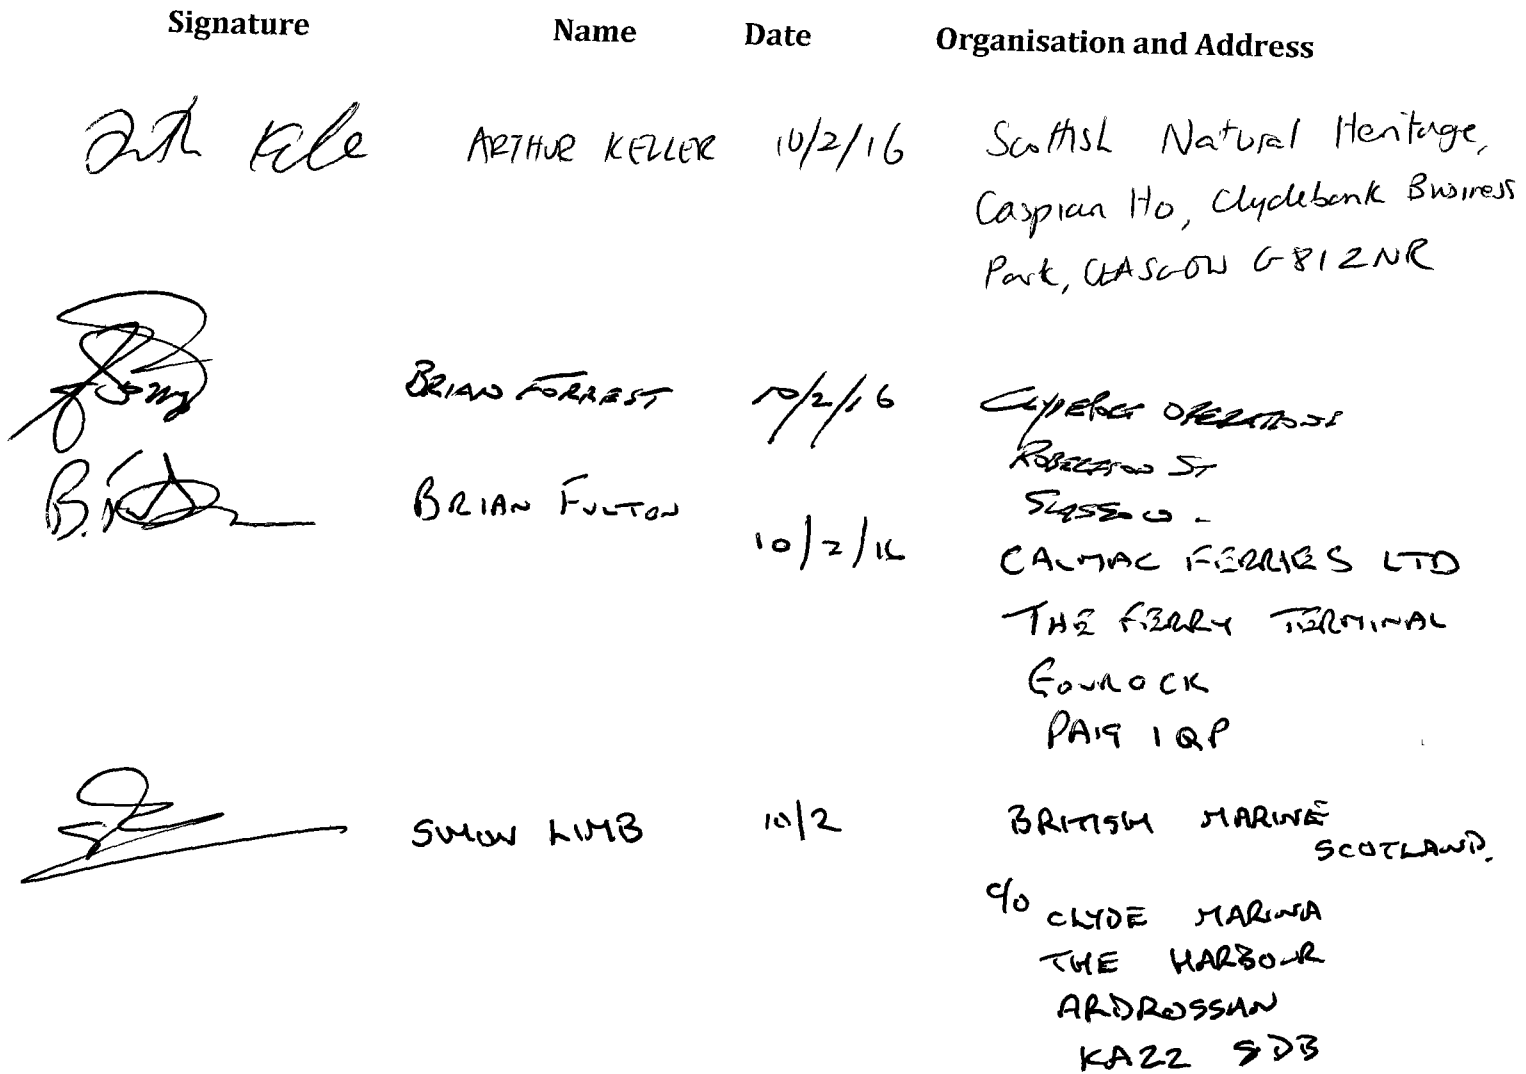 Signature Name Date Organisation and Address
ARTHUR KELLER 10/2/16 Scottish Natural Heritage,
Caspian Ho, Clydebank Business
Park, GLASGOW G81 2NR
BRIAN FORREST 10/2/16 CLYDEPORT OPERATIONS
ROBERTSON ST
GLASGOW.
BRIAN FULTON 10/2/16
CALMAC FERRIES LTD
THE FERRY TERMINAL
GOUROCK
PA19 1QP
SIMON LIMB 10/2 BRITISH MARINE
SCOTLAND.
c/o CLYDE MARINA
THE HARBOUR
ARDROSSAN
KA22 8DB